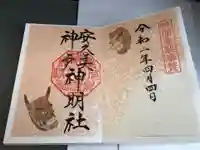 令和二年四月四日
安久美
神戸
神明社